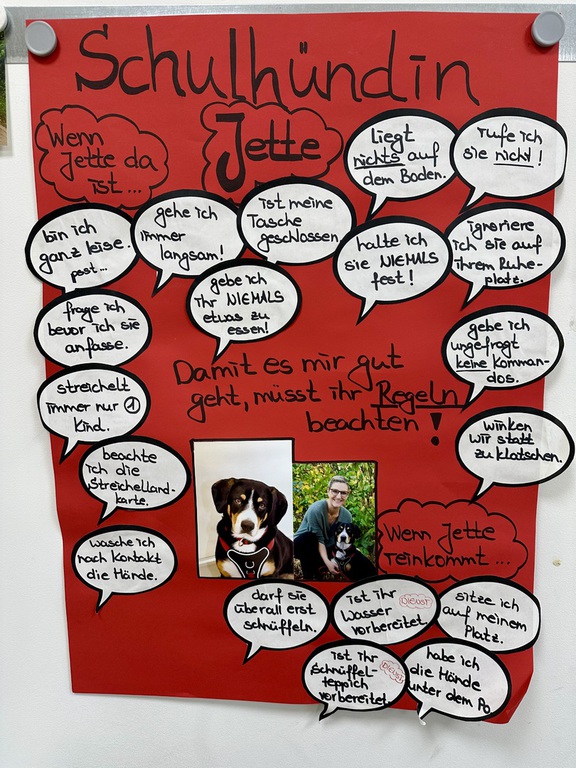 Schulhündin
Jette
Wenn
Jette da
ist...
bin ich
ganz leise.
psst...
gehe ich
immer
langsam!
ist meine
Tasche
geschlossen
liegt
nichts auf
dem Boden.
rufe ich
sie nicht!
frage ich
bevor ich sie
anfasse.
gebe ich
ihr NIEMALS
etwas zu
essen!
halte ich
sie NIEMALS
fest!
ignoriere
ich sie auf
ihrem Ruhe-
platz.
streichelt
immer nur 1
Kind.
gebe ich
ungefragt
keine Komman-
dos.
beachte
ich die
Streichelland-
karte.
winken
wir statt
zu klatschen.
wasche ich
nach Kontakt
die Hände.
Damit es mir gut
geht, müsst ihr Regeln
beachten!
Wenn Jette
reinkommt...
darf sie
überall erst
schnüffeln.
ist ihr
Wasser DIENST
vorbereitet.
sitze ich
auf meinem
Platz.
ist ihr
Schnüffel- DIENST
teppich
vorbereitet.
habe ich
die Hände
unter dem Po